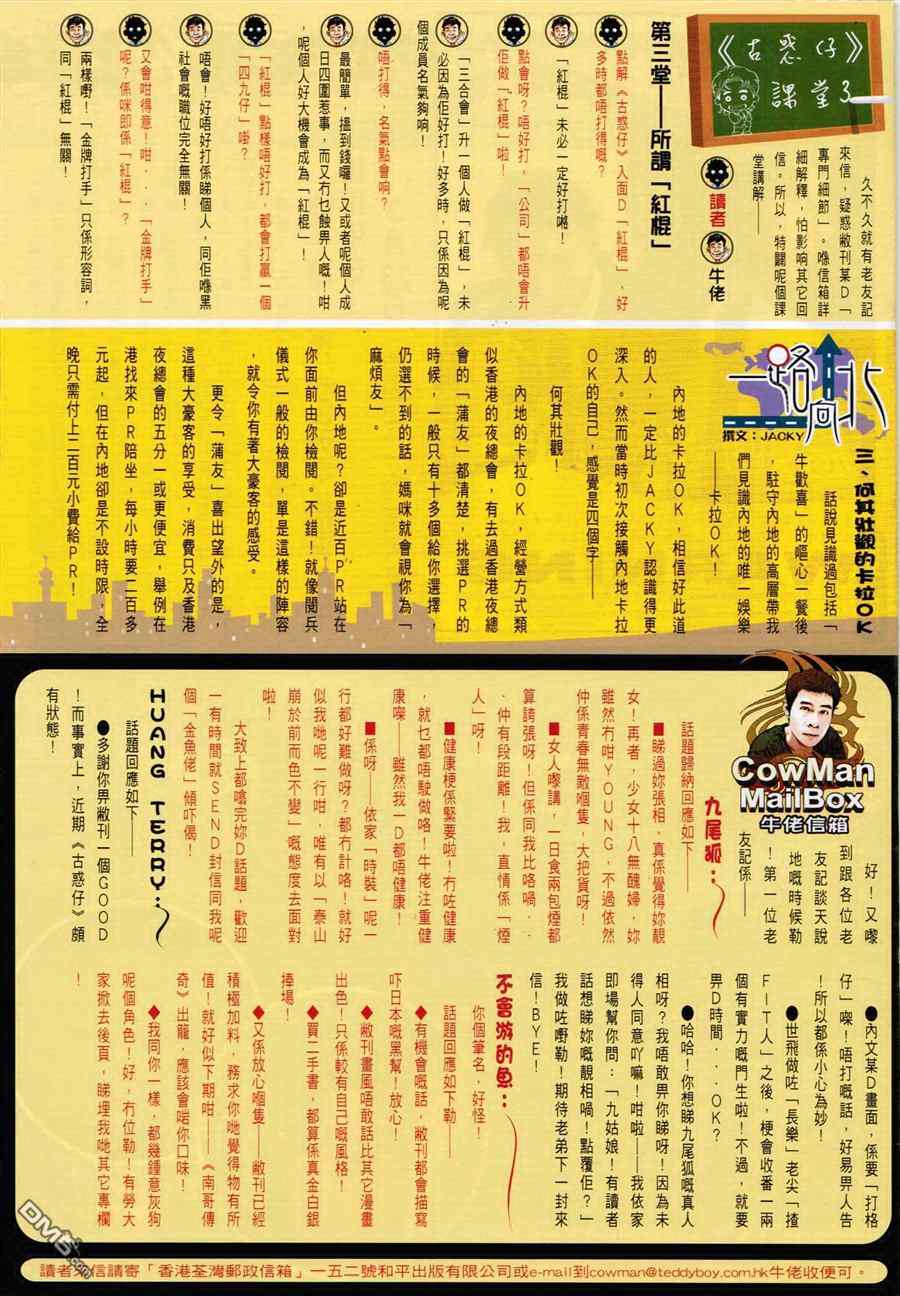 《古惑仔》
課堂3
久不久就有老友記
來信，疑惑敝刊某D「
專門細節」。喺信箱詳
細解釋，怕影響其它回
信。所以，特闢呢個課
堂講解——
讀者
牛佬
第三堂——所謂「紅棍」
點解《古惑仔》入面D「紅棍」，好
多時都唔打得嘅？
「紅棍」未必一定好打嘅！
點會呀？唔好打，「公司」都唔會升
佢做「紅棍」啦！
「三合會」升一個人做「紅棍」，未
必因為佢好打！好多時，只係因為呢
個成員名氣夠响！
唔打得，名氣點會响？
最簡單，搵到錢囉！又或者呢個人成
日四圍惹事，而又冇乜蝕畀人嘅！咁
，呢個人好大機會成為「紅棍」！
「紅棍」點樣唔好打，都會打贏一個
「四九仔」啩？
唔會！好唔好打係睇個人，同佢喺黑
社會嘅職位完全無關！
又會咁得意！咁．．．「金牌打手」
呢？係咪即係「紅棍」？
兩樣嘢！「金牌打手」只係形容詞，
同「紅棍」無關！
一路向北
撰文：JACKY
三、何其壯觀的卡拉OK
話說見識過包括「
牛歡喜」的嘔心一餐後
，駐守內地的高層帶我
們見識內地的唯一娛樂
——卡拉OK！
內地的卡拉OK，相信好此道
的人，一定比JACKY認識得更
深入。然而當時初次接觸內地卡拉
OK的自己，感覺是四個字——
何其壯觀！
內地的卡拉OK，經營方式類
似香港的夜總會，有去過香港夜總
會的「蒲友」都清楚，挑選PR的
時候，一般只有十多個給你選擇，
仍選不到的話，媽咪就會視你為「
麻煩友」。
但內地呢？卻是近百PR站在
你面前由你檢閱。不錯！就像閱兵
儀式一般的檢閱，單是這樣的陣容
，就令你有著大豪客的感受。
更令「蒲友」喜出望外的是，
這種大豪客的享受，消費只及香港
夜總會的五分一或更便宜，舉例在
港找來PR陪坐，每小時要二百多
元起，但在內地卻是不設時限，全
晚只需付上二百元小費給PR！
CowMan
MailBox
牛佬信箱
好！又嚟
到跟各位老
友記談天說
地嘅時候勒
！第一位老
友記係——
九尾狐：
話題歸納回應如下——
■睇過妳張相，真係覺得妳靚
女！再者，少女十八無醜婦，妳
雖然冇咁YOUNG，不過依然
仲係青春無敵嗰隻，大把貨呀！
■女人嚟講，一日食兩包煙都
算誇張呀！但係同我比咯喎，
仲有段距離！我，直情係「煙
人」呀！
■健康梗係緊要啦！冇咗健康
，就乜都唔駛做咯！牛佬注重健
康㗎——雖然我一D都唔健康！
■係呀——依家「時裝」呢一
行都好難做呀？都冇計咯！就好
似我哋呢一行咁，唯有以「泰山
崩於前而色不變」嘅態度去面對
啦！
大致上都噏完妳D話題，歡迎
一有時間就SEND封信同我呢
個「金魚佬」傾吓偈！
HUANG TERRY：
話題回應如下——
●多謝你畀敝刊一個GOOD
！而事實上，近期《古惑仔》頗
有狀態！
●內文某D畫面，係要「打格
仔」㗎！唔打嘅話，好易畀人告
！所以都係小心為妙！
●世飛做咗「長樂」老尖「揸
FIT人」之後，梗會收番一兩
個有實力嘅門生啦！不過，就要
畀D時間．．．OK？
●哈哈！你想睇九尾狐嘅真人
相呀？我唔敢畀你睇呀！因為未
得人同意吖嘛！咁啦——我依家
即場幫你問：「九姑娘！有讀者
話想睇妳嘅靚相喎！點覆佢？」
我做咗嘢勒！期待老弟下一封來
信！BYE！
不會游的魚：
你個筆名，好怪！
話題回應如下勒——
◆有機會嘅話，敝刊都會描寫
吓日本嘅黑幫！放心！
◆敝刊畫風唔敢話比其它漫畫
出色！只係較有自己嘅風格！
◆買二手書，都算係真金白銀
捧場！
◆又係放心嗰隻——敝刊已經
積極加料，務求你哋覺得物有所
值！就好似下期咁——《南哥傳
奇》出籠，應該會啱你口味！
◆我同你一樣，都幾鍾意灰狗
呢個角色！好，冇位勒！有勞大
家掀去後頁，睇埋我哋其它專欄
！
讀者來信請寄「香港荃灣郵政信箱」一五二號和平出版有限公司或e-mail到cowman@teddyboy.com.hk牛佬收便可。